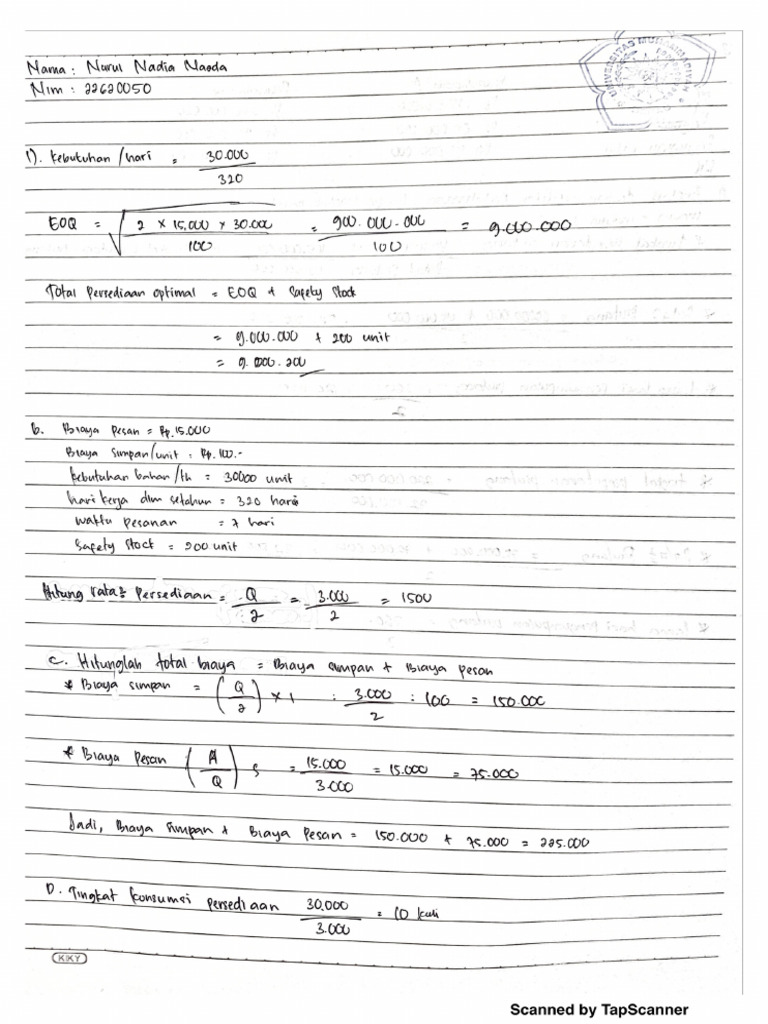 Nama : Nurul Nadia Naoda
Nim : 22620050
UNIVERSITAS MUHAMMADIYAH
1). Kebutuhan /hari = 30.000 / 320
EOQ = √ 2 × 15.000 × 30.000 / 100 = 900.000.000 / 100 = 9.000.000
Total Persediaan optimal = EOQ + Safety Stock
= 9.000.000 + 200 unit
= 9.000.200
b. Biaya Pesan = Rp.15.000
Biaya Simpan/unit : Rp.100.-
kebutuhan bahan/th = 30000 unit
hari kerja dlm setahun = 320 hari
waktu pesanan = 7 hari
Safety stock = 200 unit
Hitung rata2 Persediaan = Q / 2 = 3.000 / 2 = 1500
C. Hitunglah total biaya = Biaya simpan + Biaya pesan
* Biaya simpan = (Q / 2) × 1 : 3.000 / 2 : 100 = 150.000
* Biaya Pesan (A / Q) S = 15.000 / 3.000 = 15.000 = 75.000
Jadi, Biaya simpan + Biaya Pesan = 150.000 + 75.000 = 225.000
D. Tingkat konsumsi persediaan 30.000 / 3.000 = 10 kali
KIKY
Scanned by TapScanner